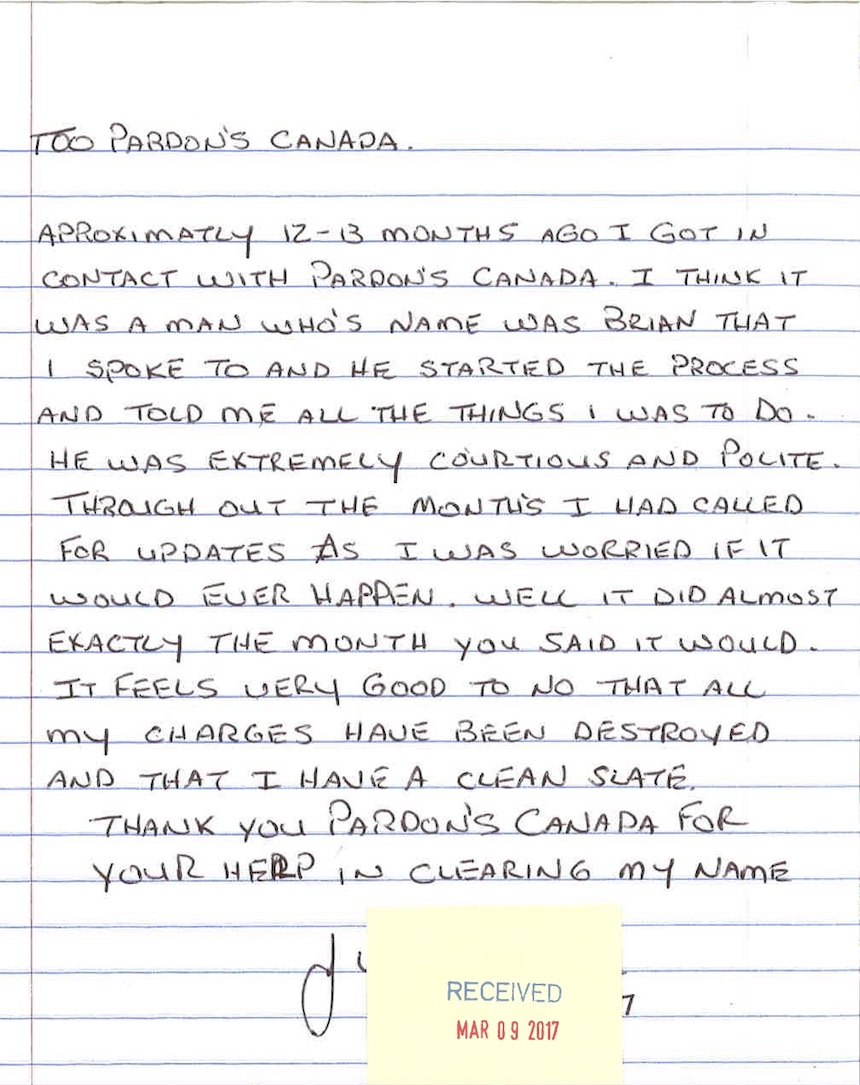 TOO PARDON'S CANADA.
APROXIMATLY 12-13 MONTHS AGO I GOT IN
CONTACT WITH PARDON'S CANADA. I THINK IT
WAS A MAN WHO'S NAME WAS BRIAN THAT
I SPOKE TO AND HE STARTED THE PROCESS
AND TOLD ME ALL THE THINGS I WAS TO DO.
HE WAS EXTREMELY COURTIOUS AND POLITE.
THROUGH OUT THE MONTH'S I HAD CALLED
FOR UPDATES AS I WAS WORRIED IF IT
WOULD EVER HAPPEN. WELL IT DID ALMOST
EXACTLY THE MONTH YOU SAID IT WOULD.
IT FEELS VERY GOOD TO NO THAT ALL
MY CHARGES HAVE BEEN DESTROYED
AND THAT I HAVE A CLEAN SLATE.
THANK YOU PARDON'S CANADA FOR
YOUR HELP IN CLEARING MY NAME
RECEIVED
MAR 09 2017